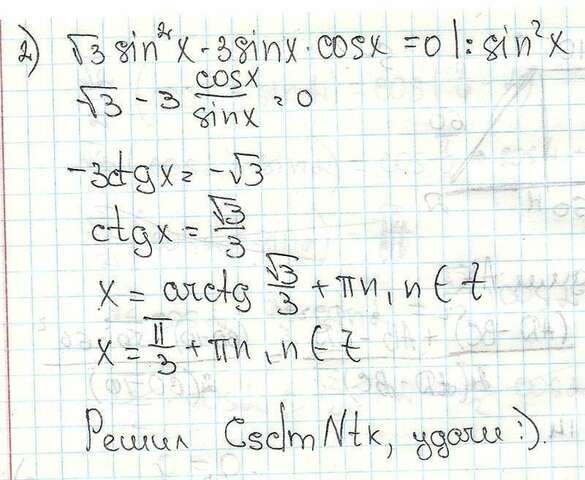 2) √3 sin²x - 3sinx · cosx = 0 |: sin²x
√3 - 3 cosx/sinx = 0
-3ctgx = -√3
ctgx = √3/3
x = arctg √3/3 + πn, n ∈ Z
x = π/3 + πn, n ∈ Z
Решил CsdmNtk, удачи :).